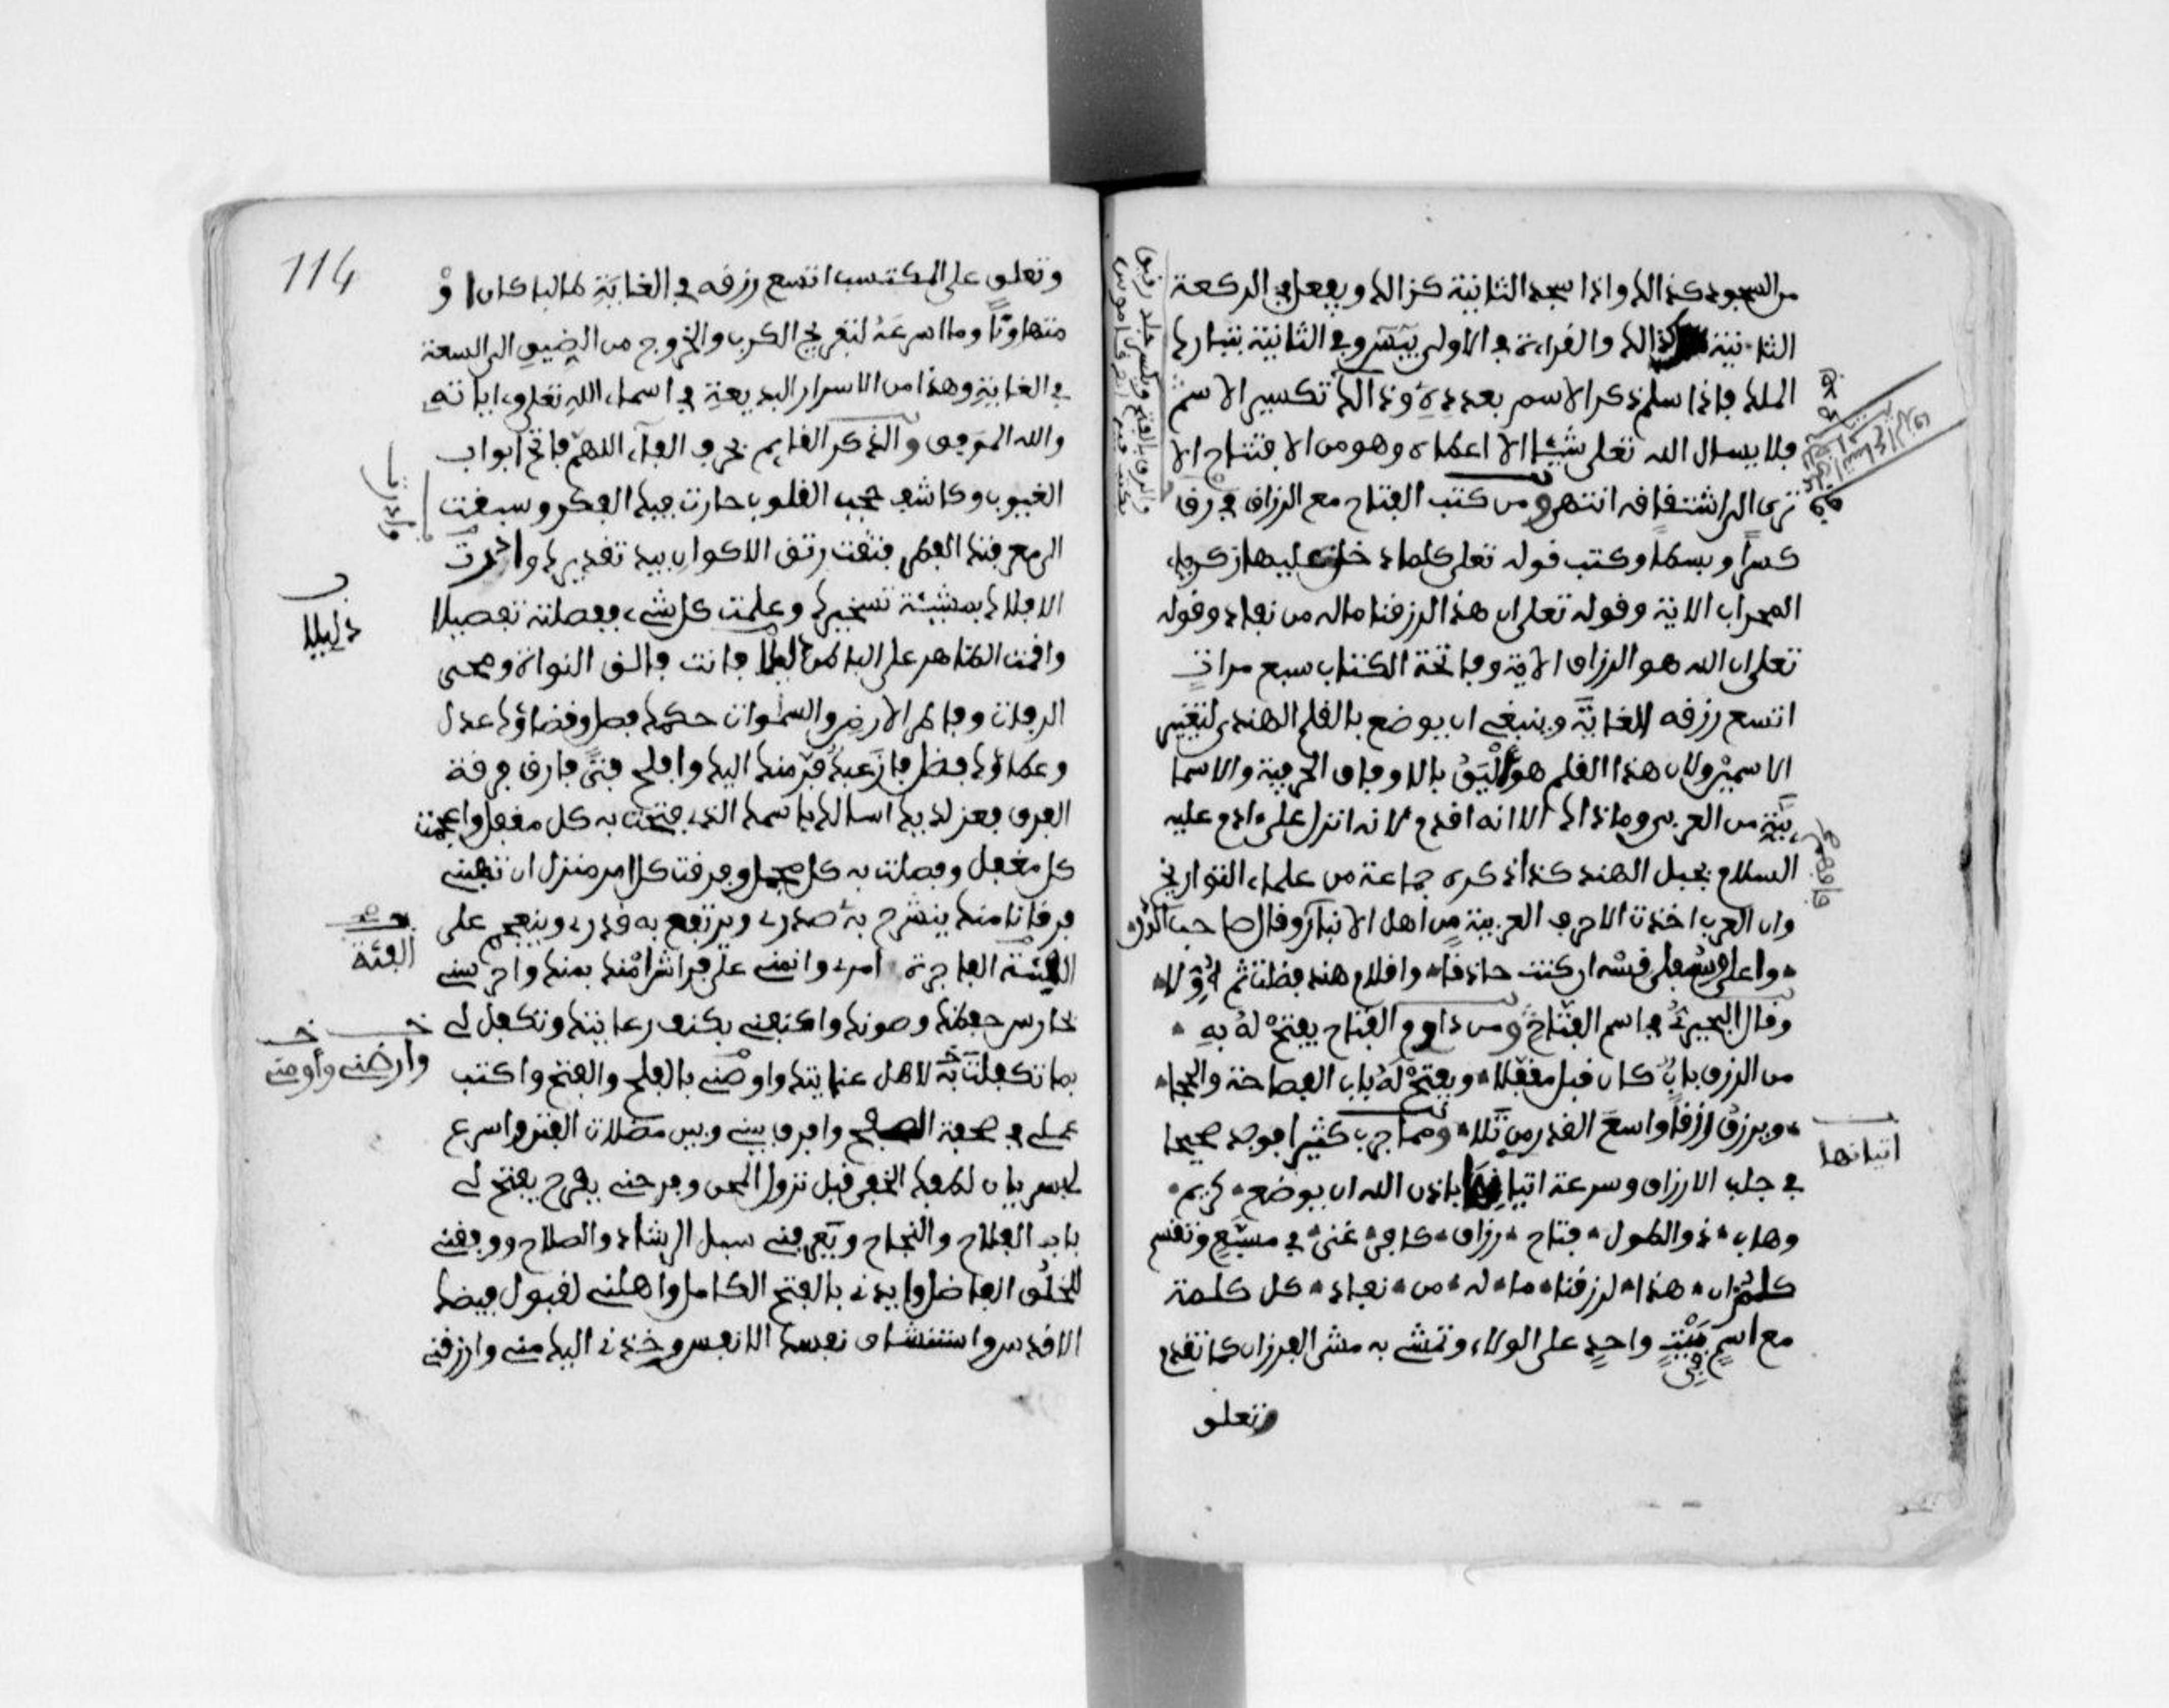 من السجود كذالك واذا سجد الثانية كذالك ويفعل في الركعة
الثانية كذالك والقراءة في الاولى بيس وفي الثانية بتبارك
الملك فاذا سلم ذكر الاسم بعدده وذالك تكسير الاسم
فلا يسال الله تعلى شيئا الا اعطاه وهو من الافتتاح الا
ترى الى اشتقاقه انتهى ومن كتب الفتاح مع الرزاق في رق
كسرا وبسطا وكتب قوله تعلى كلما دخل عليها زكرياء
المحراب الاية وقوله تعلى ان هذا لرزقنا ماله من نفاد وقوله
تعلى ان الله هو الرزاق الاية وفاتحة الكتاب سبع مرات
اتسع رزقه للغاية وينبغي ان يوضع بالقلم الهندي لتغيير
الاسمين ولان هذا القلم هو اليق بالاوفاق الحرفية والاسما
ئية من العربي وماذاك الا انه اقدم لانه انزل على ءادم عليه
السلام بجبل الهند كذا ذكره جماعة من علماء التواريخ
وان العرب اخذت الاحرف العربية من اهل الانبار وقال صاحب
واعلى وسفلى قسه ان كنت حاذقا وافلام هند فضلت ثم اولا
وقال البحيري في اسم الفتاح ومن داوم الفتاح يفتح له به
من الرزق باب كان قبل مقفلا ويفتح له باب الفصاحة والحجا
ويرزق رزقا واسع القدر من تلا ومما جرب كثيرا فوجد صحيحا
في جلب الارزاق وسرعة اتيانها باذن الله ان يوضع كريم
وهاب ذو الطول فتاح رزاق كافي غني في مسبع وتقسم
كلم ان هذا لرزقنا ما له من نفاد كل كلمة
مع اسم في بيت واحد على الولاء وتمشي به مشى الفرزان كما تقدم
وتعلو
اتيانها
114
وتعلو على المكتسب اتسع رزقه في الغاية طالبا كان او
متهاونا وما اسرعه لتفريج الكرب والخروج من الضيق الى السعة
في الغاية وهذا من الاسرار البديعة في اسماء الله تعلى وءاياته
والله الموفق والذكر القايم بحرف الفاء اللهم فاتح ابواب
الغيوب وكاشف حجب القلوب حارت فيك الفكر وسبقت
الى معرفتك الفطر فتقت رتق الاكوان بيد تقديرك وادرت
الافلاك بمشيئة تسخيرك وعلمت كل شيء ففصلته تفصيلا
واقمت الظاهر على الباطن فانت فالق النواة ومحيي
الرفات وفاطر الارض والسموات حكمك فصل وقضاؤك عدل
وعطاؤك فضل فاز عبد فر منك اليك وافلح فتى فارق فرقة
الفرق فعز لديك اسالك باسمك الذي فتحت به كل مقفل واعجمت
كل مغفل وفصلت به كل مجمل وفرقت كل امر منزل ان تهبني
فرقانا منك ينشرح به صدري ويرتفع به قدري وينعجم على
الفاجرة امري وانمني على فراش امنك بمنك واحرسني
بحارس حفظك وصونك واكنفني بكنف رعايتك وتكفل لي
بما تكفلت به لاهل عنايتك واوصني بالفلح والفتح واكتب
عملي في صحيفة الصفح وافرق بيني وبين مضلات الفتن واسرع
لي بسريان لطفك الخفي قبل نزول المحن وفرحني بفرح يفتح لي
باب الفلاح والنجاح ويعرفني سبل الرشاد والصلاح ووفقني
للخلق الفاضل وايدني بالفتح الكامل واهلني لقبول فيضك
الاقدس واستنشاق نفسك الانفس وخذني اليك مني وارزقني
دليلا
الفئة
وارضني واومني